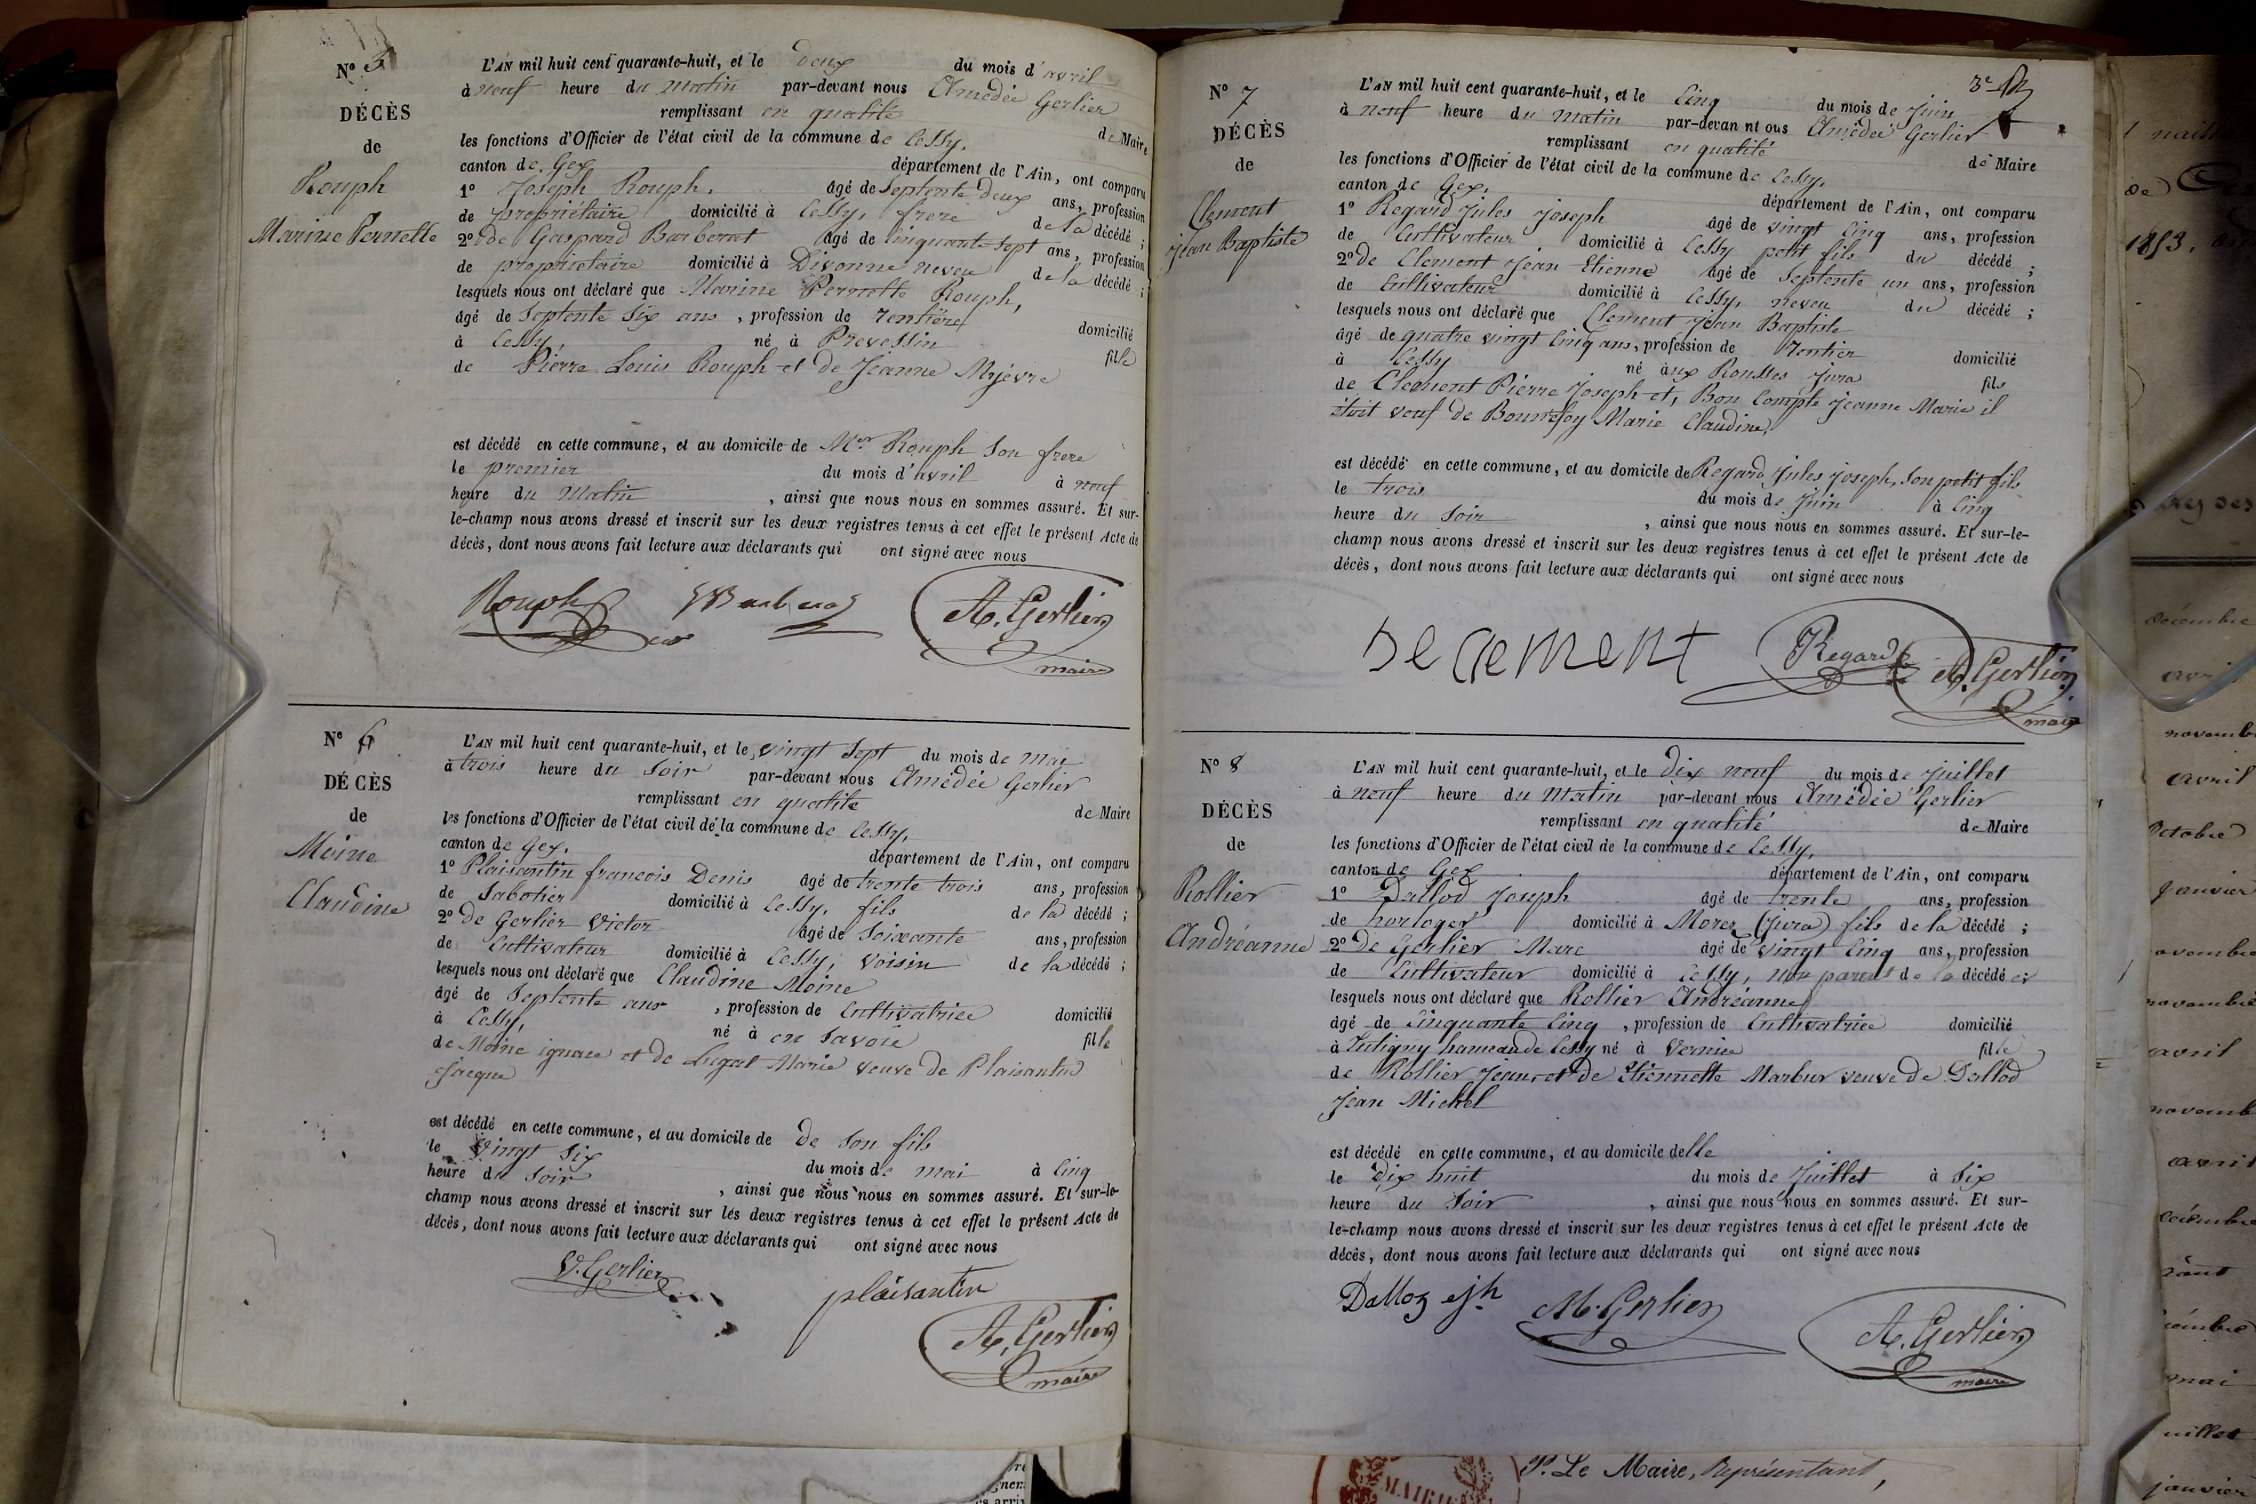 N° 5
DÉCÈS
de
Rouph
Marine Pernette
L'AN mil huit cent quarante-huit, et le deux du mois d'avril
à neuf heure du matin par-devant nous Amédée Gerlier
remplissant en qualité de Maire
les fonctions d'Officier de l'état civil de la commune de Cessy,
canton de Gex, département de l'Ain, ont comparu
1° Joseph Rouph, âgé de septente deux ans, profession
de propriétaire domicilié à Cessy, frere de la décédé ;
2° de Gaspard Barberat âgé de cinquante sept ans, profession
de propriétaire domicilié à Divonne neveu de la décédé ;
lesquels nous ont déclaré que Marine Pernette Rouph,
âgé de septente six ans, profession de rentière domicilié
à Cessy, né à Prevessin fille
de Pierre Louis Rouph et de Jeanne
est décédé en cette commune, et au domicile de Mer Rouph son frere
le premier du mois d'avril à neuf
heure du matin, ainsi que nous nous en sommes assuré. Et sur-
le-champ nous avons dressé et inscrit sur les deux registres tenus à cet effet le présent Acte de
décès, dont nous avons fait lecture aux déclarants qui ont signé avec nous
Rouph A. Gerlier
maire
N° 6
DÉCÈS
de
Moine
Claudine
L'AN mil huit cent quarante-huit, et le vingt sept du mois de mai
à trois heure du soir par-devant nous Amédée Gerlier
remplissant en qualité de Maire
les fonctions d'Officier de l'état civil de la commune de Cessy,
canton de Gex, département de l'Ain, ont comparu
1° Plaisantin francois Denis âgé de trente trois ans, profession
de Sabotier domicilié à Cessy, fils de la décédé ;
2° de Gerlier Victor âgé de soixante ans, profession
de Cultivateur domicilié à Cessy, voisin de la décédé ;
lesquels nous ont déclaré que Claudine Moine
âgé de septente ans, profession de Cultivatrice domicilié
à Cessy, né à en Savoie fille
de Moine ignace et de Marie veuve de Plaisantin
Jacque
est décédé en cette commune, et au domicile de de son fils
le vingt six du mois de mai à cinq
heure du soir, ainsi que nous nous en sommes assuré. Et sur-le-
champ nous avons dressé et inscrit sur les deux registres tenus à cet effet le présent Acte de
décès, dont nous avons fait lecture aux déclarants qui ont signé avec nous
V. Gerlier plaisantin
A. Gerlier
maire
N° 7
DÉCÈS
de
Clement
Jean Baptiste
L'AN mil huit cent quarante-huit, et le cinq du mois de juin
à neuf heure du matin par-devan nt ous Amédée Gerlier
remplissant en qualité de Maire
les fonctions d'Officier de l'état civil de la commune de Cessy,
canton de Gex, département de l'Ain, ont comparu
1° Regard Jules Joseph âgé de vingt cinq ans, profession
de Cultivateur domicilié à Cessy petit fils du décédé ;
2° de Clement Jean Etienne âgé de septente un ans, profession
de Cultivateur domicilié à Cessy, neveu du décédé ;
lesquels nous ont déclaré que Clement Jean Baptiste
âgé de quatre vingt cinq ans, profession de rentier domicilié
à Cessy né aux Rousses Jura fils
de Clement Pierre Joseph et, Bon Compte Jeanne Marie il
était veuf de Bonnefoy Marie Claudine,
est décédé en cette commune, et au domicile de Regard Jules Joseph, son petit fils
le trois du mois de juin à cinq
heure du soir, ainsi que nous nous en sommes assuré. Et sur-le-
champ nous avons dressé et inscrit sur les deux registres tenus à cet effet le présent Acte de
décès, dont nous avons fait lecture aux déclarants qui ont signé avec nous
Regard A. Gerlier
maire
N° 8
DÉCÈS
de
Rollier
Andréanne
L'AN mil huit cent quarante-huit, et le dix neuf du mois de juillet
à neuf heure du matin par-devant nous Amédée Gerlier
remplissant en qualité de Maire
les fonctions d'Officier de l'état civil de la commune de Cessy,
canton de Gex département de l'Ain, ont comparu
1° Dallod Joseph âgé de trente ans, profession
de horloger domicilié à Morez (Jura) fils de la décédé ;
2° de Gerlier Marc âgé de vingt cinq ans, profession
de Cultivateur domicilié à Cessy, non parent de la décédé ;
lesquels nous ont déclaré que Rollier Andréanne
âgé de cinquante cinq, profession de Cultivatrice domicilié
à hameau de Cessy né à fille
de Rollier Jean et de Etiennette Marbur veuve de Dallod
Jean Michel
est décédé en cette commune, et au domicile delle
le dix huit du mois de juillet à six
heure du soir, ainsi que nous nous en sommes assuré. Et sur-
le-champ nous avons dressé et inscrit sur les deux registres tenus à cet effet le présent Acte de
décès, dont nous avons fait lecture aux déclarants qui ont signé avec nous
Dalloz jh M. Gerlier A. Gerlier
maire
P. Le Maire, Représentant,
MAIRIE
1853.
avril
octobre
janvier
avril
mai
janvier